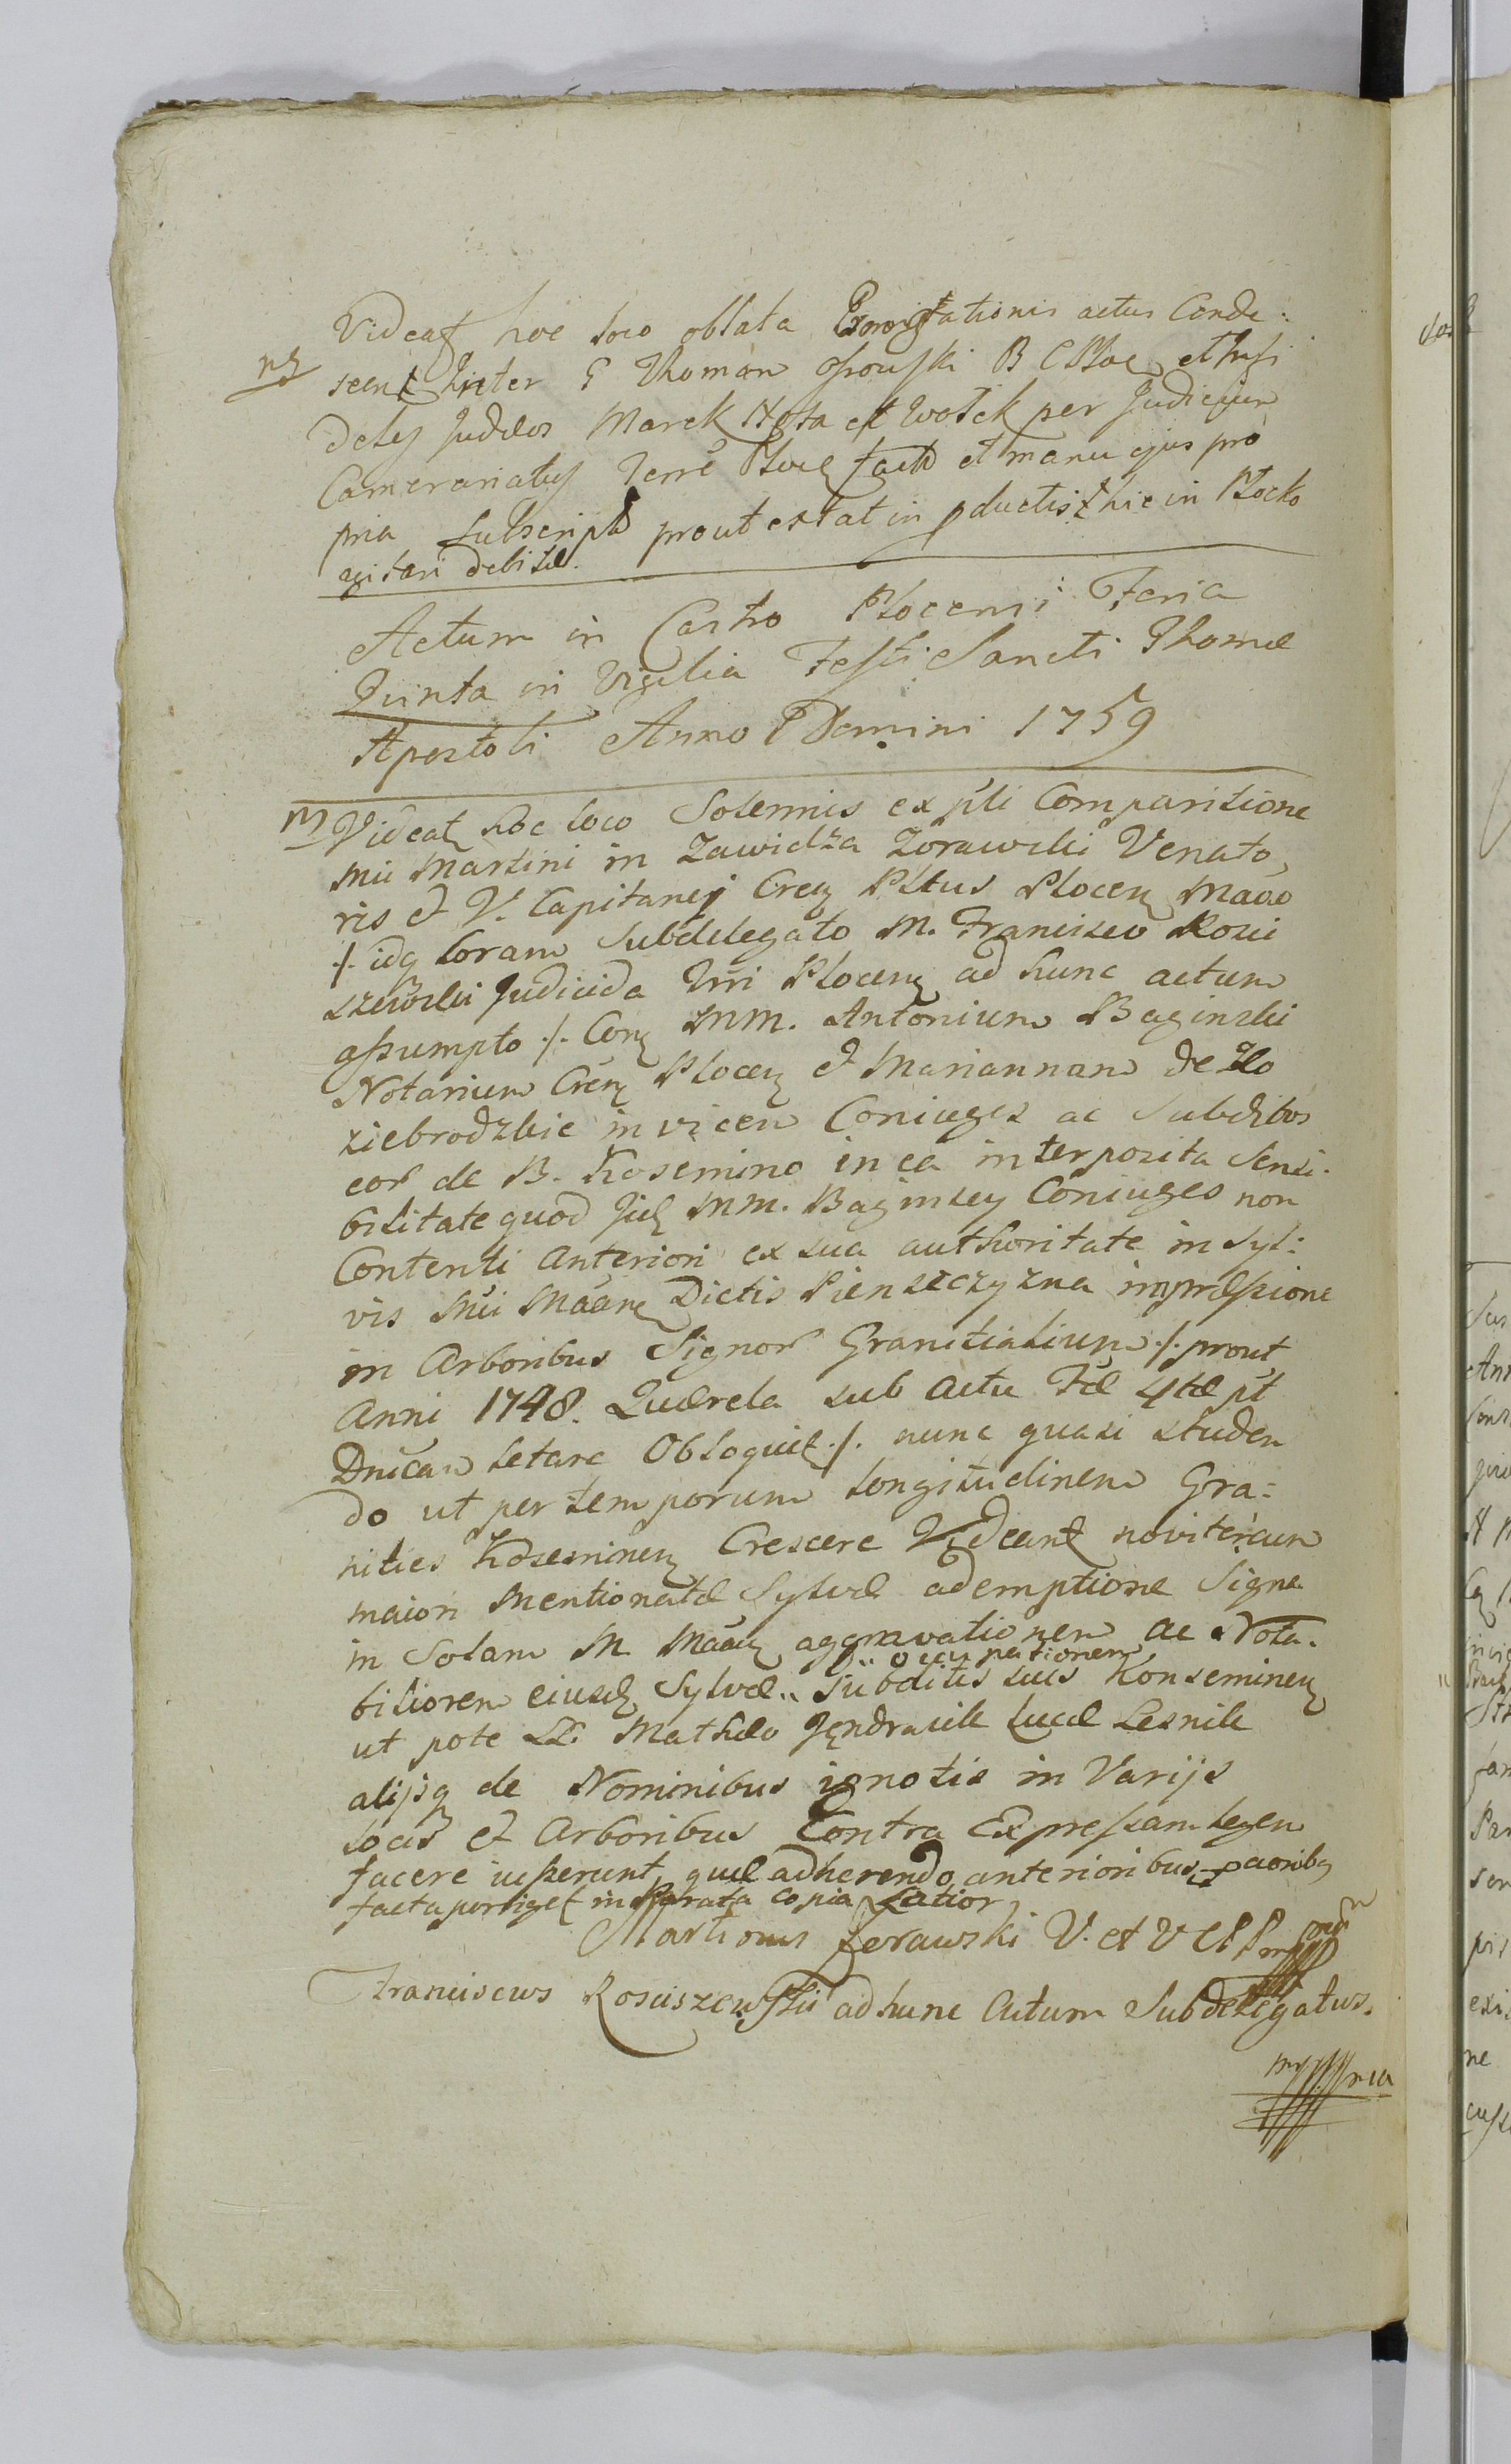 Videat hoc loco oblata actus Conde:
nd
scent Inter G Thoman B C Ploc et Infi
deles Judeos Marek et Wolek per Judicium
Camerariatus Terre Ploc facta et manu ejus pro
pria Subscripta prout extat in pductis hic in Plocko
agitari debitæ.
Actum in Castro Plocensi Feria
Quinta in Vigilia Festi Sancti Thomæ
Apostoli Anno Domini 1759
m Videat hoc loco Solennis ex pti Comparitione
Mii Martini in Zawidza Zorawski Venato
ris et V. Capitanej Cren Pltus Plocen Maao
./. idq Coram Subdelegato M. Francisco Rosci
szewski Judicida Trri Plocen ad hunc actum
assumpto ./. Con MM. Antonium Baginski
Notarium Cren Plocen et Mariannam de Ko
ziebrodzkie invicem Coniuges ac Subdtos
eor de B. Kosemino in ea interposita Sensi.
bilitate quod Iid MM. Baginscy Coniuges non
Contenti anteriori ex sua authoritate in Syl:
vis Mii Maan Dictis Pienszczyzna impressione
in Arboribus Signor Granitialium ./. prout
Anni 1748. Quærela sub actu Fæ 4tæ pt
Dnicam Letare Obloquit ./. nunc quasi studen
do ut per temporum Longitudinem Gra:
nities Koseminen Crescere Videant noviter cum
maiori mentionatæ Sylvæ ademptione Signa
in Solam M Maan aggravationem ac Nota.
,, occupationem
biliorem eiusd Sylvæ ,, Subditis suis Konseminen
ut pote LL. Mathæo Jendrasik Lucæ Lesnik
alijsq de Nominibus ignotis in Varijs
locis et Arboribus Contra Expressam legem
facere iusserunt, quæ adherendo anterioribus
facta porriget in Sparata copia Latior
Martinus Zerawski V. et V C P P mp
Franciscus Rosciszewski ad hunc Actum Subdelegatus.
mppria